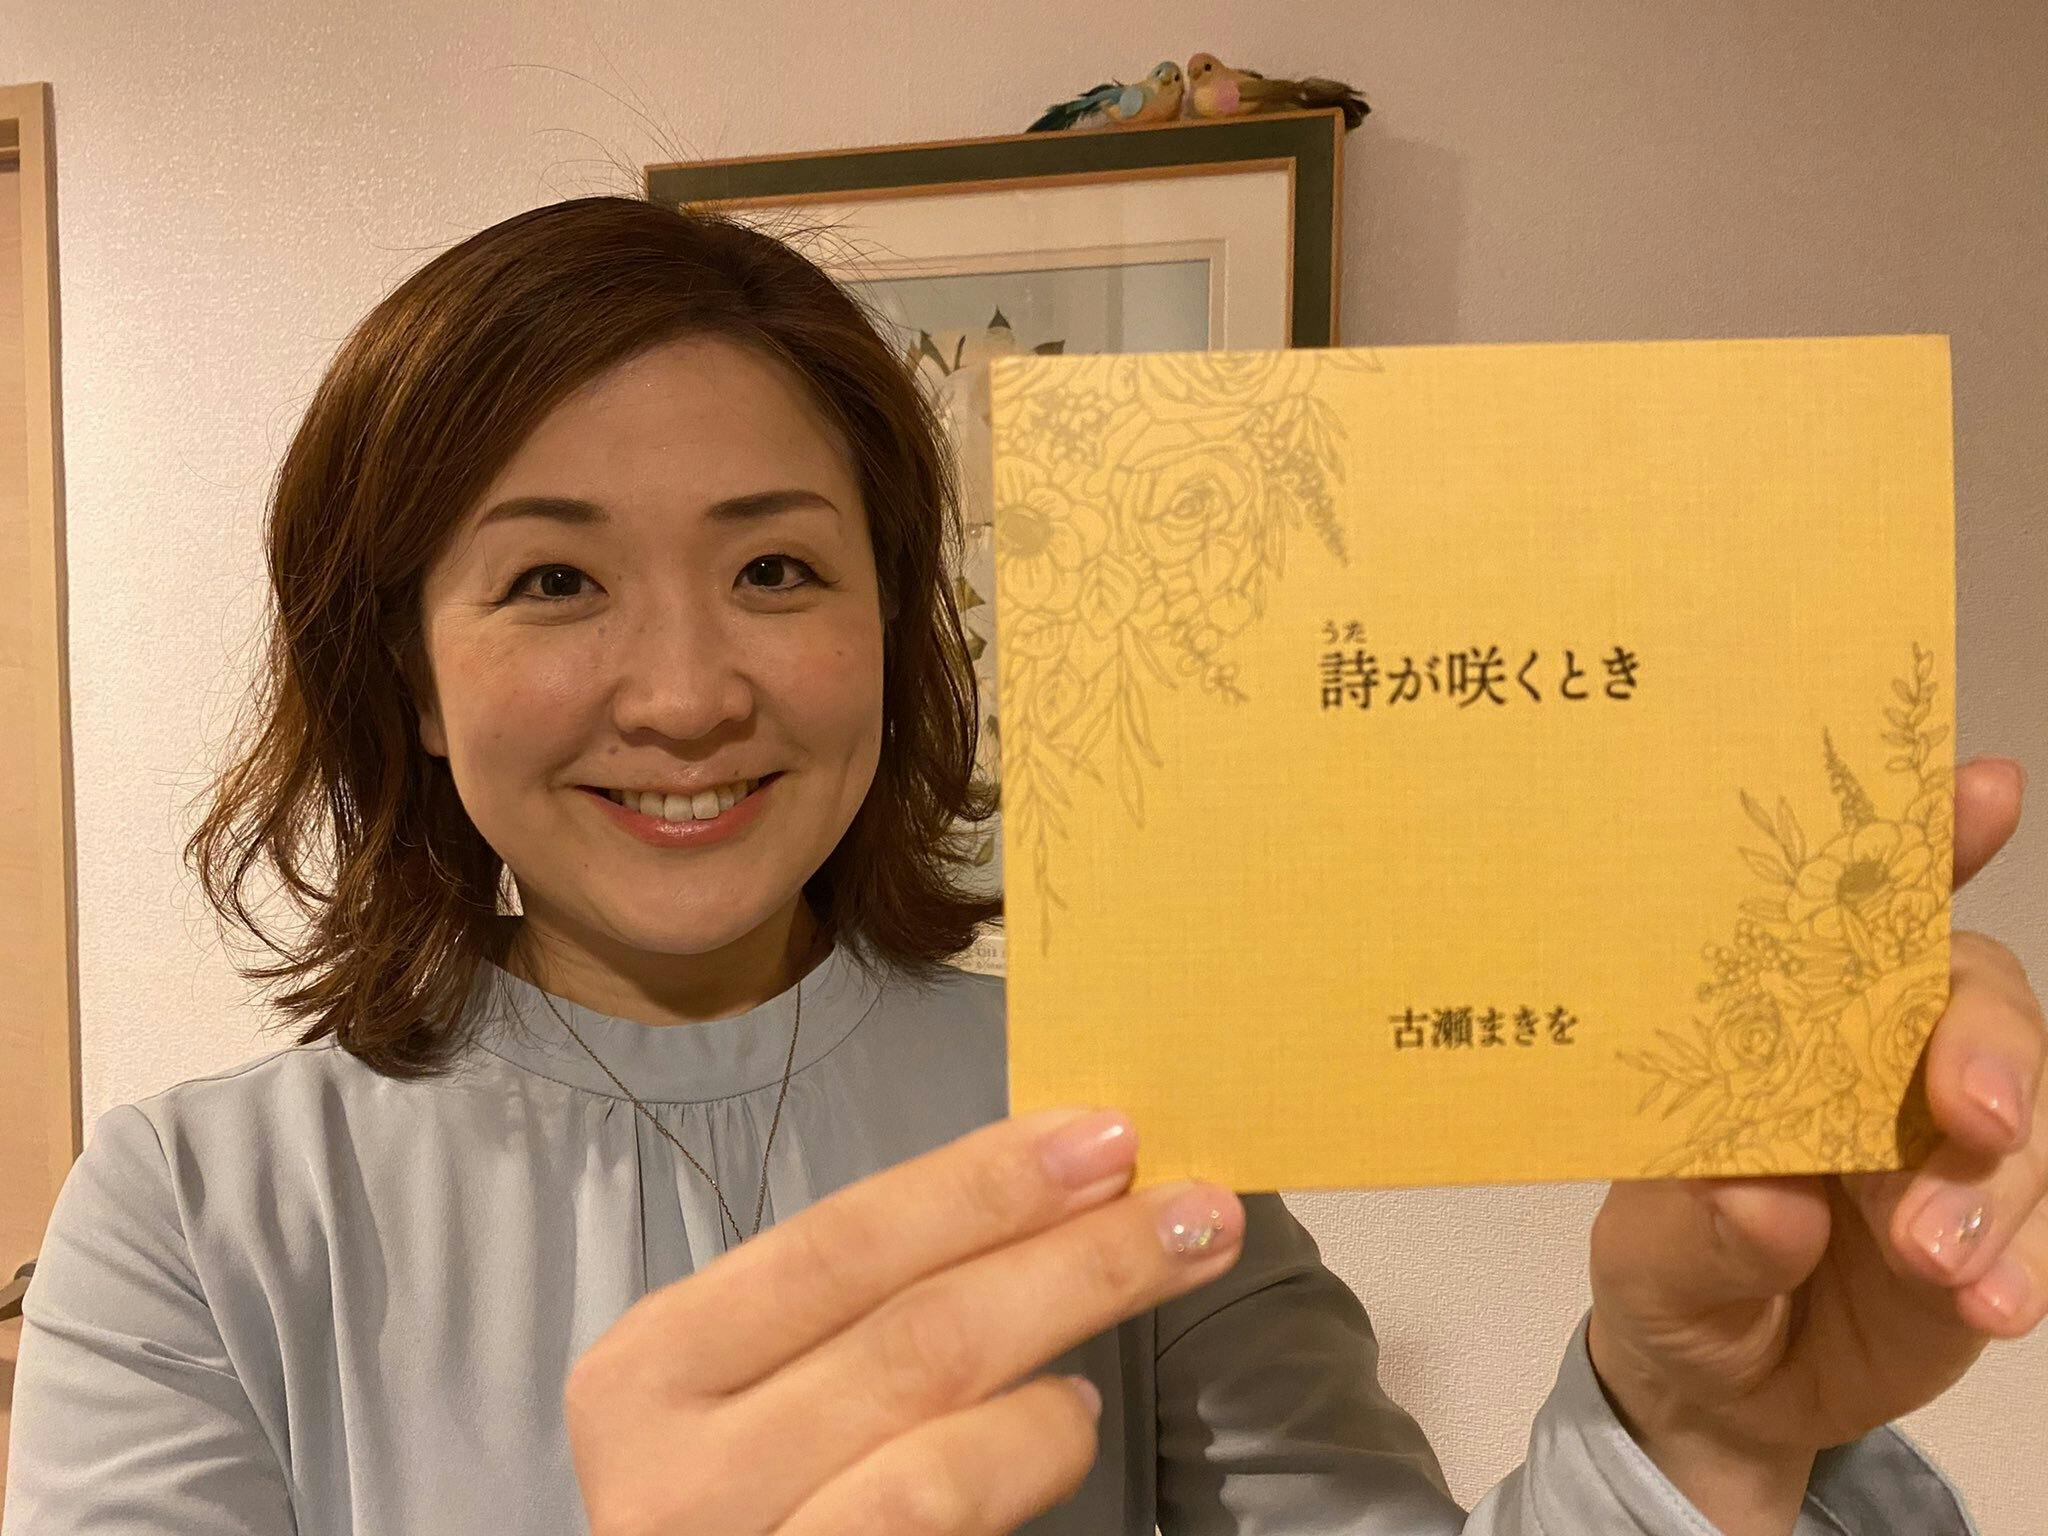 うた
詩が咲くとき
古瀬まきを